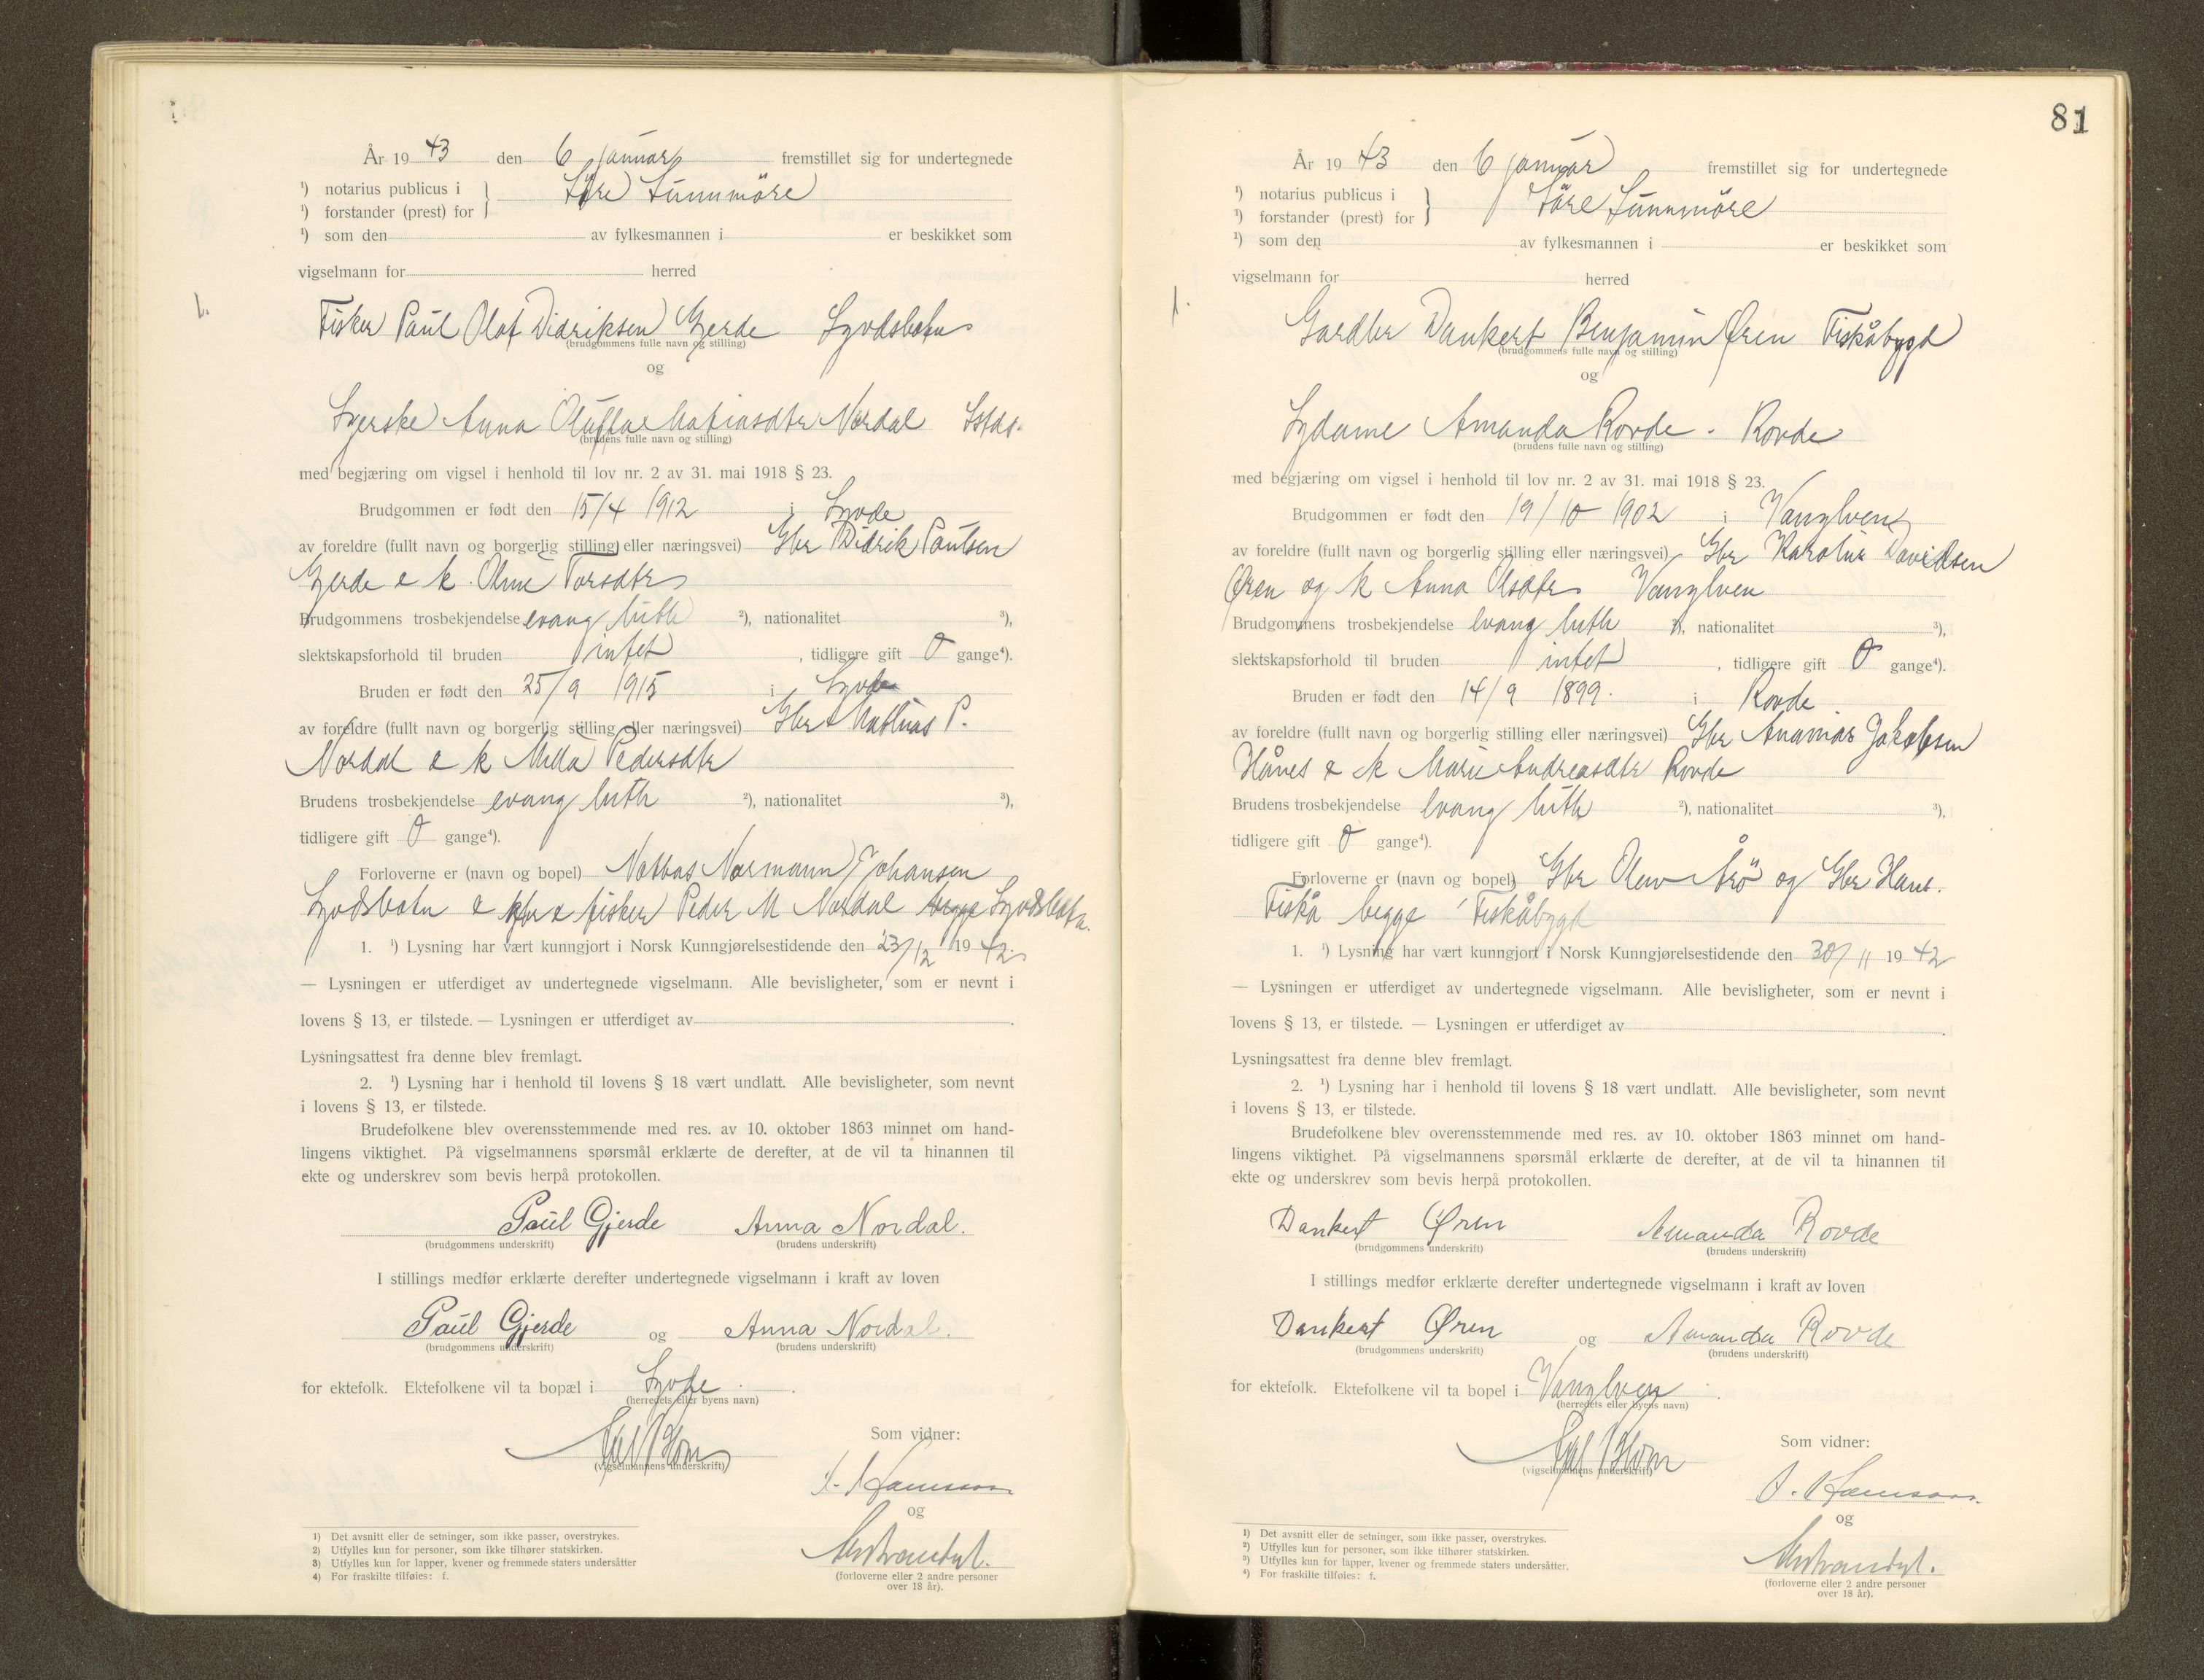 År 19 43 den 6 januar fremstillet sig for undertegnede
¹) notarius publicus i
¹) forstander (prest) for
Söre Sunnmöre
¹) som den av fylkesmannen i er beskikket som
vigselmann for herred
1.
Fisker Paul Olaf Didriksen Gjerde Syvdsbotn
(brudgommens fulle navn og stilling)
og
Syerske Anna Mathiasdtr Nordal Sstds.
(brudens fulle navn og stilling)
med begjæring om vigsel i henhold til lov nr. 2 av 31. mai 1918 § 23.
Brudgommen er født den 15/4 1912 i Syvde
av foreldre (fullt navn og borgerlig stilling eller næringsvei) Gbr Didrik Paulsen
Gjerde & k. Oline Torsdtr
Brudgommens trosbekjendelse evang luth ²), nationalitet ³),
slektskapsforhold til bruden intet , tidligere gift 0 gange⁴).
Bruden er født den 25/9 1915 i Syvde
av foreldre (fullt navn og borgerlig stilling eller næringsvei) Gbr Mathias P.
Nordal & k Pedersdtr
Brudens trosbekjendelse evang luth ²), nationalitet ³),
tidligere gift 0 gange⁴).
Forloverne er (navn og bopel) Normann Johansen
Syvdsbotn & fisker Peder M Nordal begge Syvdsbotn.
1. ¹) Lysning har vært kunngjort i Norsk Kunngjørelsestidende den 23/12 19 42
— Lysningen er utferdiget av undertegnede vigselmann. Alle bevisligheter, som er nevnt i
lovens § 13, er tilstede. — Lysningen er utferdiget av .
Lysningsattest fra denne blev fremlagt.
2. ¹) Lysning har i henhold til lovens § 18 vært undlatt. Alle bevisligheter, som nevnt
i lovens § 13, er tilstede.
Brudefolkene blev overensstemmende med res. av 10. oktober 1863 minnet om hand-
lingens viktighet. På vigselmannens spørsmål erklærte de derefter, at de vil ta hinannen til
ekte og underskrev som bevis herpå protokollen.
Paul Gjerde Anna Nordal.
(brudgommens underskrift) (brudens underskrift)
I stillings medfør erklærte derefter undertegnede vigselmann i kraft av loven
Paul Gjerde og Anna Nordal.
(brudgommens underskrift) (brudens underskrift)
for ektefolk. Ektefolkene vil ta bopæl i Syvde .
(herredets eller byens navn)
Som vidner:
(vigselmannens underskrift)
og
(forloverne eller 2 andre personer
over 18 år).
1) Det avsnitt eller de setninger, som ikke passer, overstrykes.
2) Utfylles kun for personer, som ikke tilhører statskirken.
3) Utfylles kun for lapper, kvener og fremmede staters undersåtter
4) For fraskilte tilføies: f.
81
År 19 43 den 6 januar fremstillet sig for undertegnede
¹) notarius publicus i
¹) forstander (prest) for
Söre Sunnmöre
¹) som den av fylkesmannen i er beskikket som
vigselmann for herred
1.
Gardbr Dankert Benjamin Øren Fiskåbygd
(brudgommens fulle navn og stilling)
og
Sydame Amanda Rovde . Rovde
(brudens fulle navn og stilling)
med begjæring om vigsel i henhold til lov nr. 2 av 31. mai 1918 § 23.
Brudgommen er født den 19/10 1902 i Vanylven
av foreldre (fullt navn og borgerlig stilling eller næringsvei) Gbr Karolus Davidsen
Øren og k Anna Olsdtr Vanylven
Brudgommens trosbekjendelse evang luth ²), nationalitet ³),
slektskapsforhold til bruden intet , tidligere gift 0 gange⁴).
Bruden er født den 14/9 1899. i Rovde
av foreldre (fullt navn og borgerlig stilling eller næringsvei) Gbr Ananias Jakobsen
Hånes & k Marie Andreasdtr Rovde
Brudens trosbekjendelse evang luth ²), nationalitet ³),
tidligere gift 0 gange⁴).
Forloverne er (navn og bopel) Gbr og Gbr Hans.
Fiskå begge Fiskåbygd
1. ¹) Lysning har vært kunngjort i Norsk Kunngjørelsestidende den 30/11 19 42
— Lysningen er utferdiget av undertegnede vigselmann. Alle bevisligheter, som er nevnt i
lovens § 13, er tilstede. — Lysningen er utferdiget av .
Lysningsattest fra denne blev fremlagt.
2. ¹) Lysning har i henhold til lovens § 18 vært undlatt. Alle bevisligheter, som nevnt
i lovens § 13, er tilstede.
Brudefolkene blev overensstemmende med res. av 10. oktober 1863 minnet om hand-
lingens viktighet. På vigselmannens spørsmål erklærte de derefter, at de vil ta hinannen til
ekte og underskrev som bevis herpå protokollen.
Dankert Øren Amanda Rovde
(brudgommens underskrift) (brudens underskrift)
I stillings medfør erklærte derefter undertegnede vigselmann i kraft av loven
Dankert Øren og Amanda Rovde
(brudgommens underskrift) (brudens underskrift)
for ektefolk. Ektefolkene vil ta bopel i Vanylven .
(herredets eller byens navn)
Som vidner:
(vigselmannens underskrift)
og
(forloverne eller 2 andre personer
over 18 år).
¹) Det avsnitt eller de setninger, som ikke passer, overstrykes.
²) Utfylles kun for personer, som ikke tilhører statskirken.
³) Utfylles kun for lapper, kvener og fremmede staters undersåtter.
⁴) For fraskilte tilføies: f.